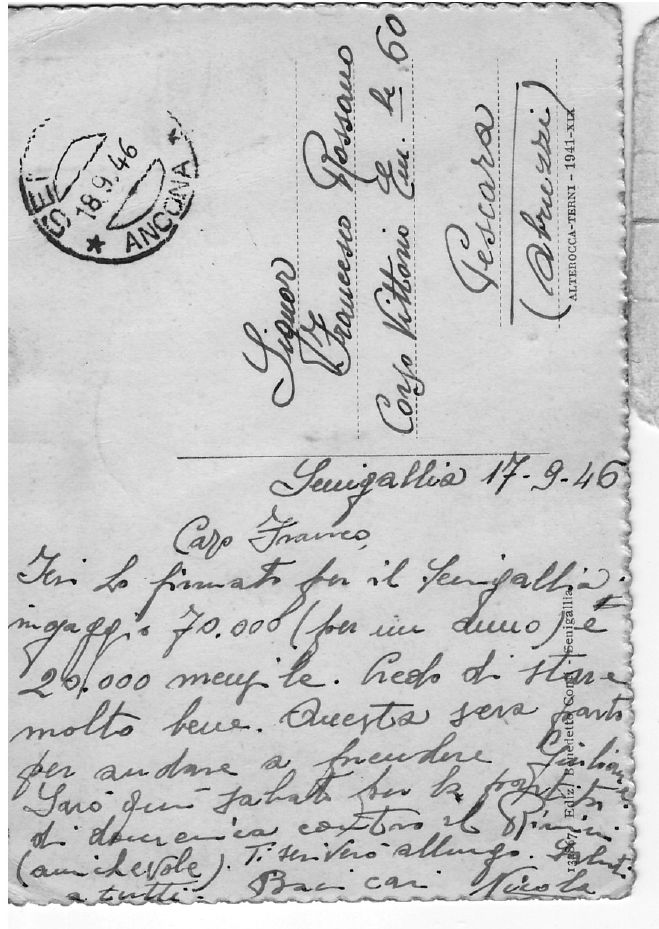 SE
18.9.46
* ANCONA *
Signor
Francesco Rossano
Corso Vittorio Em. 60
Pescara
(Abruzzi)
ALTEROCCA-TERNI - 1941-XIX
Senigallia 17-9-46
Caro Franco,
Ieri ho firmato per il Senigallia.
ingaggio 70.000 (per un anno) e
20.000 mensile. Credo di stare
molto bene. Questa sera parto
per andare a prendere Giuliana
Sarò qui sabato per la partita
di domenica contro il Rimini
(amichevole). Ti scriverò allungo. Saluti
a tutti. Baci cari Nicola
Ediz. Benedetto Conti - Senigallia